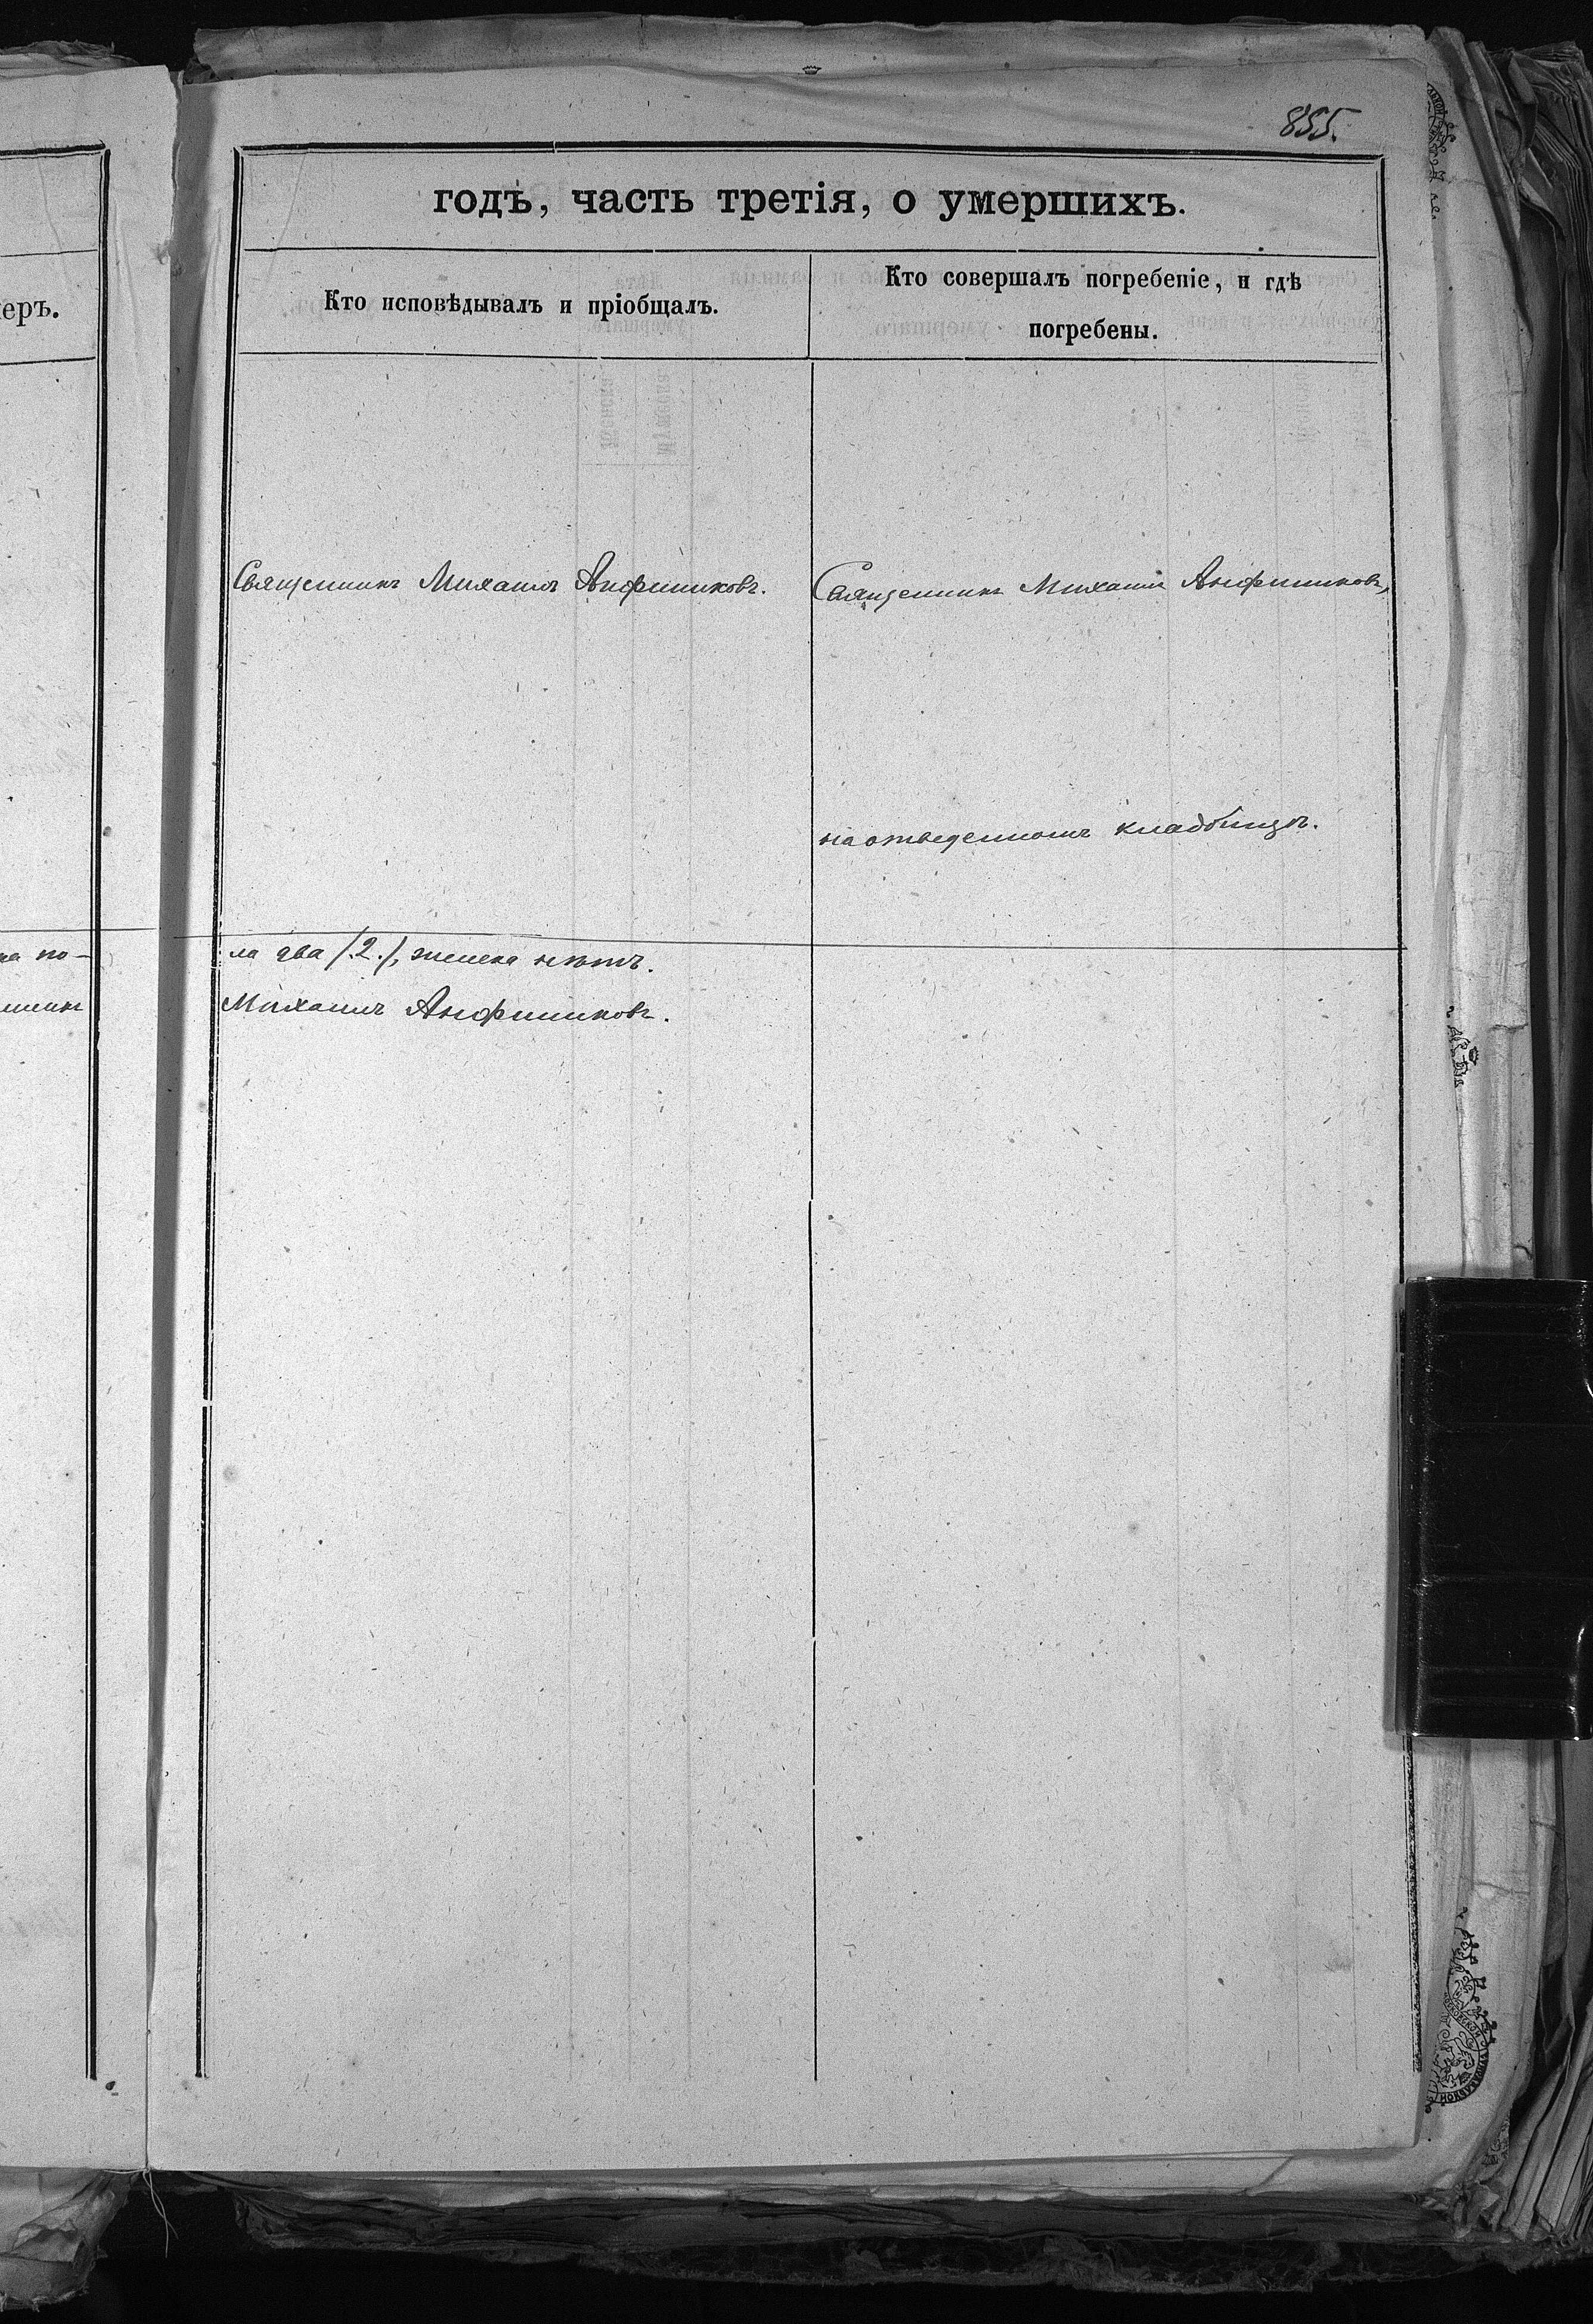 855.
годъ, часть третія, о умершихъ.
еръ.
Кто исповѣдывалъ и пріобщалъ.
Кто совершалъ погребеніе, и гдѣ
погребены.
Священникъ Михаилъ Анфиниковъ.
Священникъ Михаилъ Анфиниковъ,
на отведенномъ кладбищѣ.
на по-
ла два /.2./, женска нѣтъ.
Михаилъ Анфиниковъ.